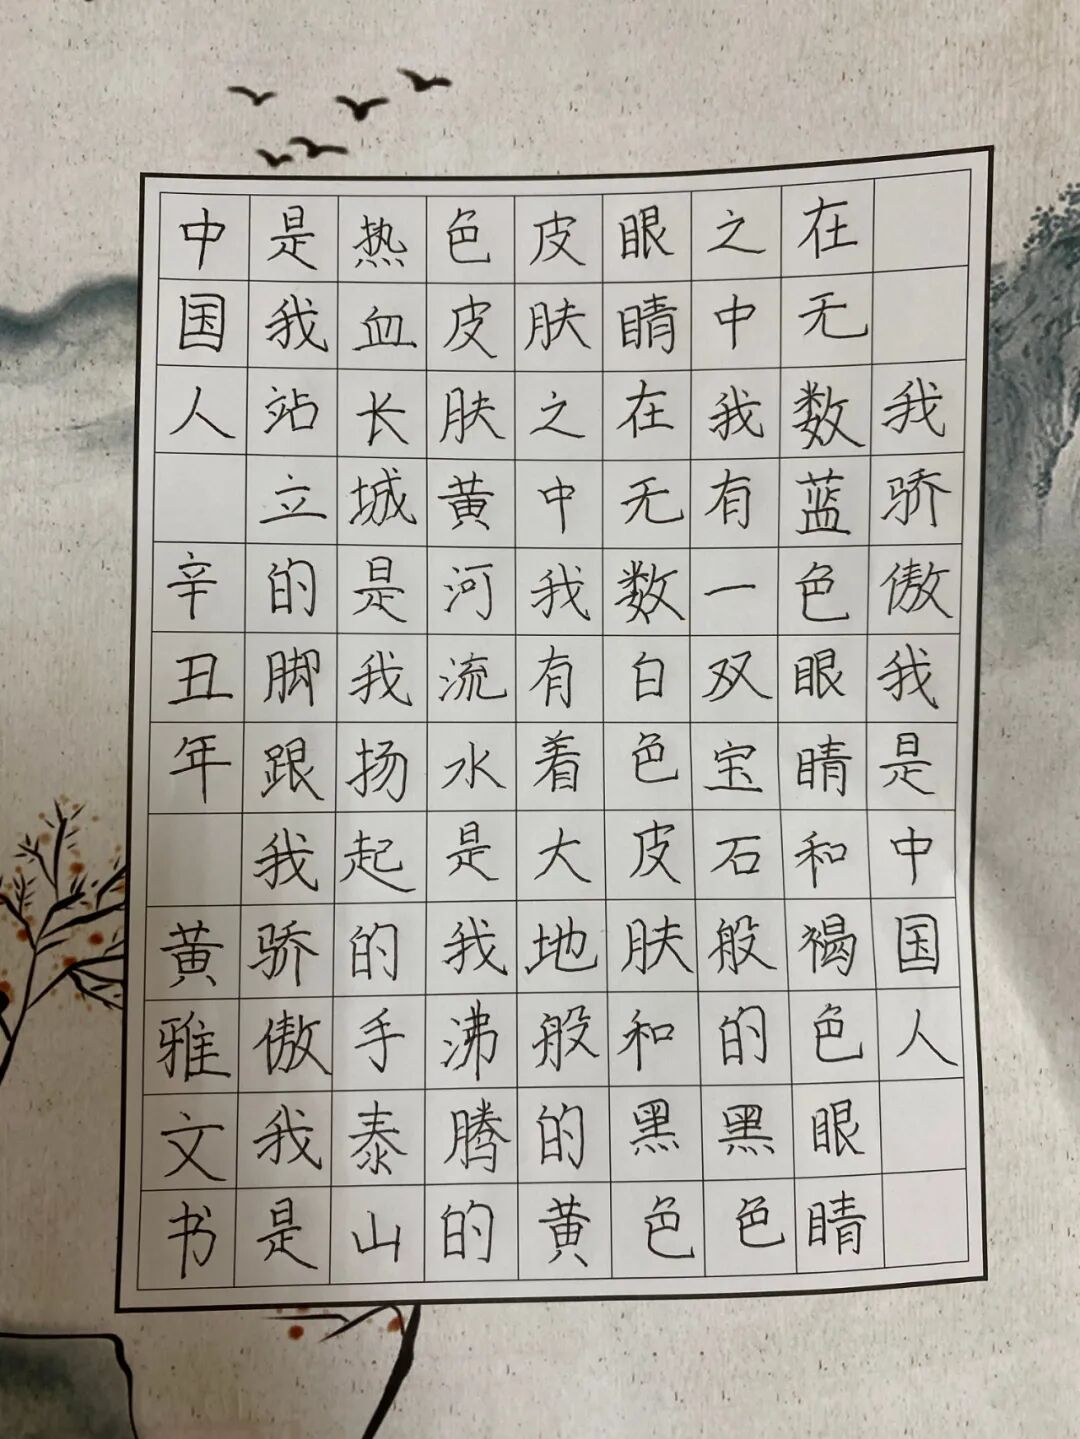 我骄傲我是中国人
在无数蓝色眼睛和褐色眼睛
之中我有一双宝石般的黑色
眼睛在无数白色皮肤和黑色
皮肤之中我有着大地般的黄
色皮肤黄河流水是我沸腾的
热血长城是我扬起的手泰山
是我站立的脚跟我骄傲我是
中国人 辛丑年 黄雅文书